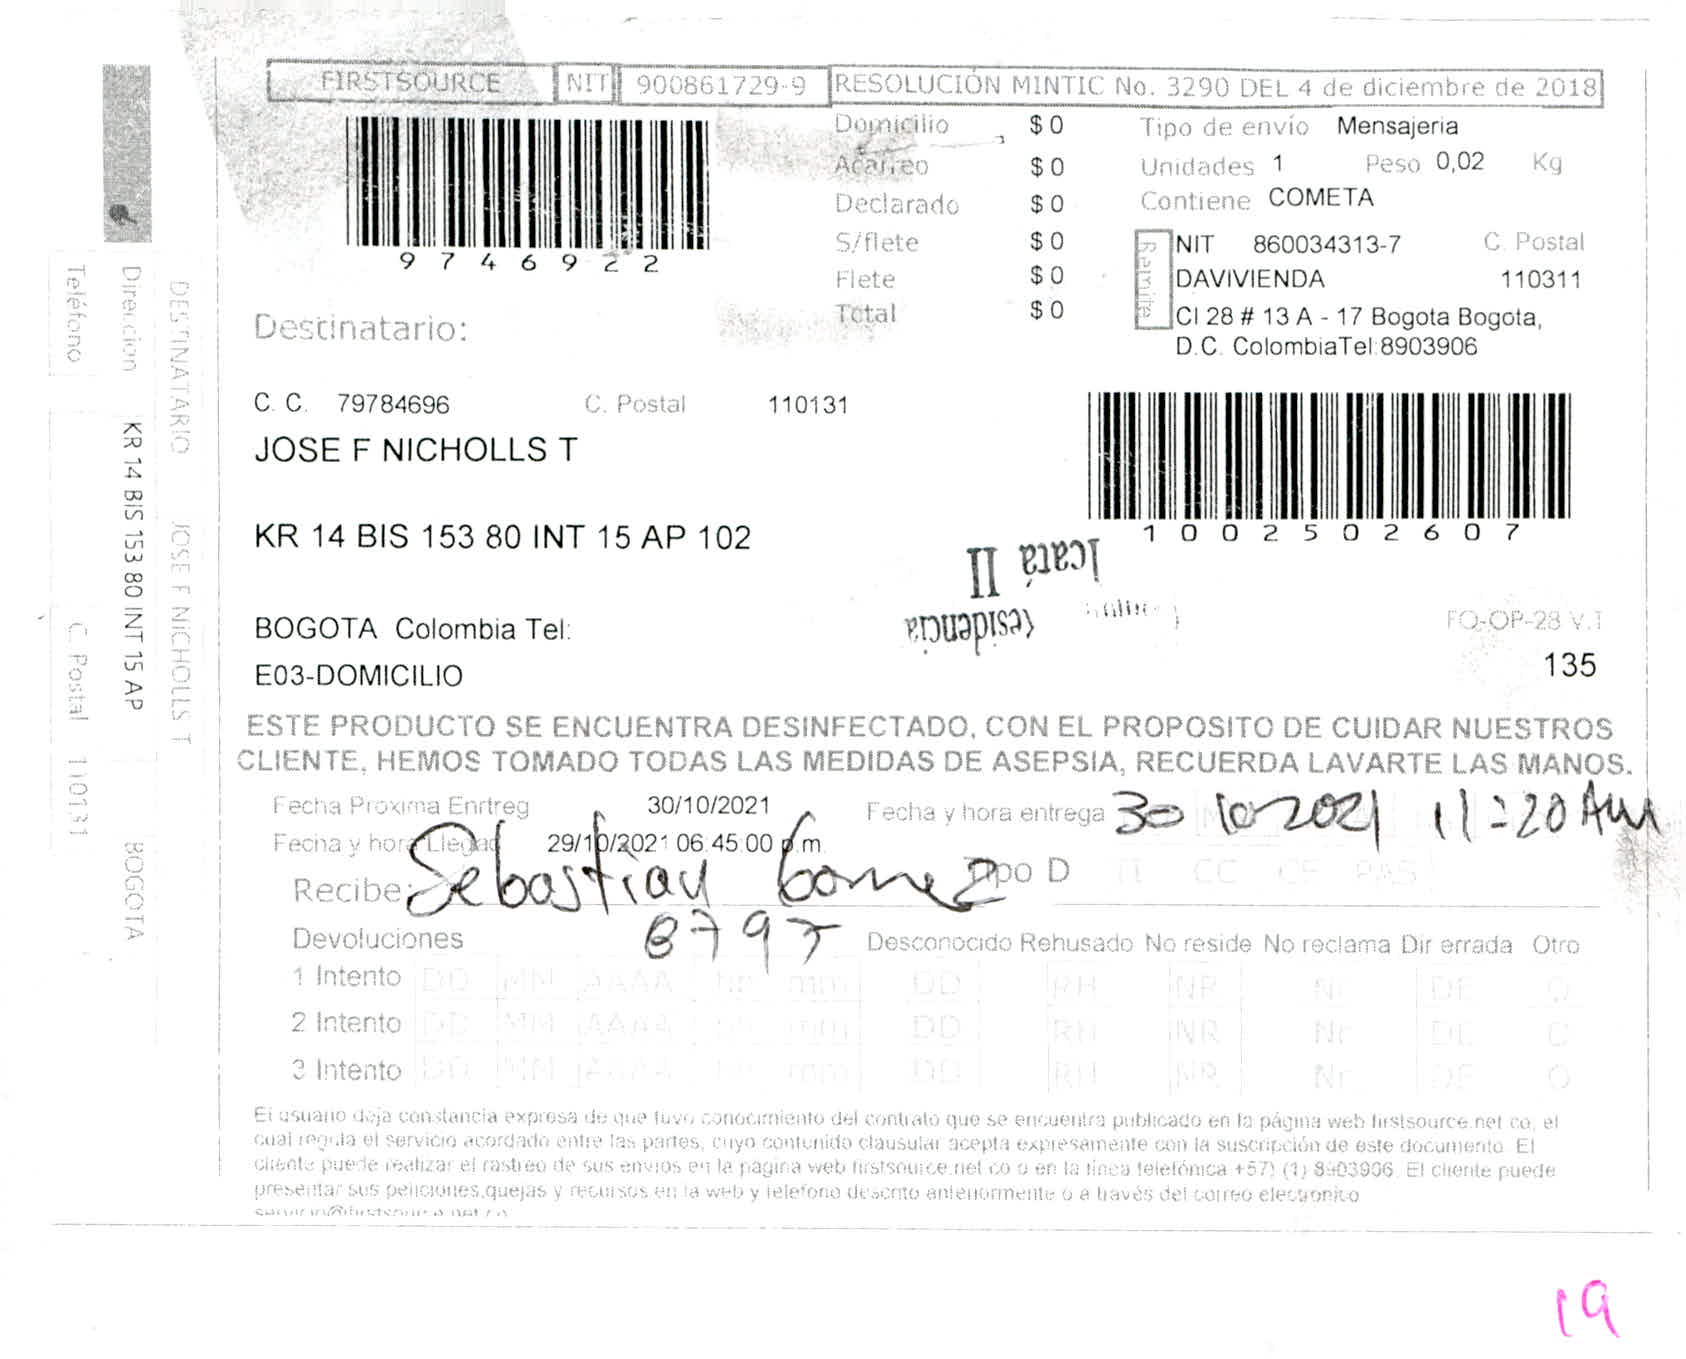 FIRSTSOURCE NIT 900861729-9 RESOLUCIÓN MINTIC No. 3290 DEL 4 de diciembre de 2018
9746922
Domicilio $ 0
Acarreo $ 0
Declarado $ 0
S/flete $ 0
Flete $ 0
Total $ 0
Tipo de envío Mensajeria
Unidades 1 Peso 0,02 Kg
Contiene COMETA
Remite
NIT 860034313-7 C. Postal
DAVIVIENDA 110311
Cl 28 # 13 A - 17 Bogota Bogota,
D.C. ColombiaTel:8903906
Destinatario:
C. C. 79784696 C. Postal 110131
JOSE F NICHOLLS T
KR 14 BIS 153 80 INT 15 AP 102
1002502607
Icatá II
residencia
BOGOTA Colombia Tel:
E03-DOMICILIO
FO-OP-28 V.1
135
ESTE PRODUCTO SE ENCUENTRA DESINFECTADO, CON EL PROPOSITO DE CUIDAR NUESTROS
CLIENTE, HEMOS TOMADO TODAS LAS MEDIDAS DE ASEPSIA, RECUERDA LAVARTE LAS MANOS.
Fecha Proxima Enrtreg 30/10/2021 Fecha y hora entrega 30 10 2021 11:20 AM
Fecha y hora Llegad 29/10/2021 06:45:00 p.m
Recibe: Sebastian Gomez Tipo D TI CC CE PAS
8797
Devoluciones Desconocido Rehusado No reside No reclama Dir errada Otro
1 Intento DD MM AAAA hh mm DD RH NR Nr DE O
2 Intento DD MM AAAA hh mm DD RH NR Nr DE O
3 Intento DD MM AAAA hh mm DD RH NR Nr DE O
El usuario deja constancia expresa de que tuvo conocimiento del contrato que se encuentra publicado en la página web firstsource.net.co, el
cual regula el servicio acordado entre las partes, cuyo contenido clausular acepta expresamente con la suscripción de este documento. El
cliente puede realizar el rastreo de sus envios en la pagina web firstsource.net.co o en la linea telefónica +57) (1) 8903906. El cliente puede
presentar sus peticiones,quejas y recursos en la web y telefono descrito anteriormente o a través del correo electronico
servicio@firstsource.net.co
DESTINATARIO JOSE F NICHOLLS T
Direccion KR 14 BIS 153 80 INT 15 AP BOGOTA
Teléfono C. Postal 110131
19